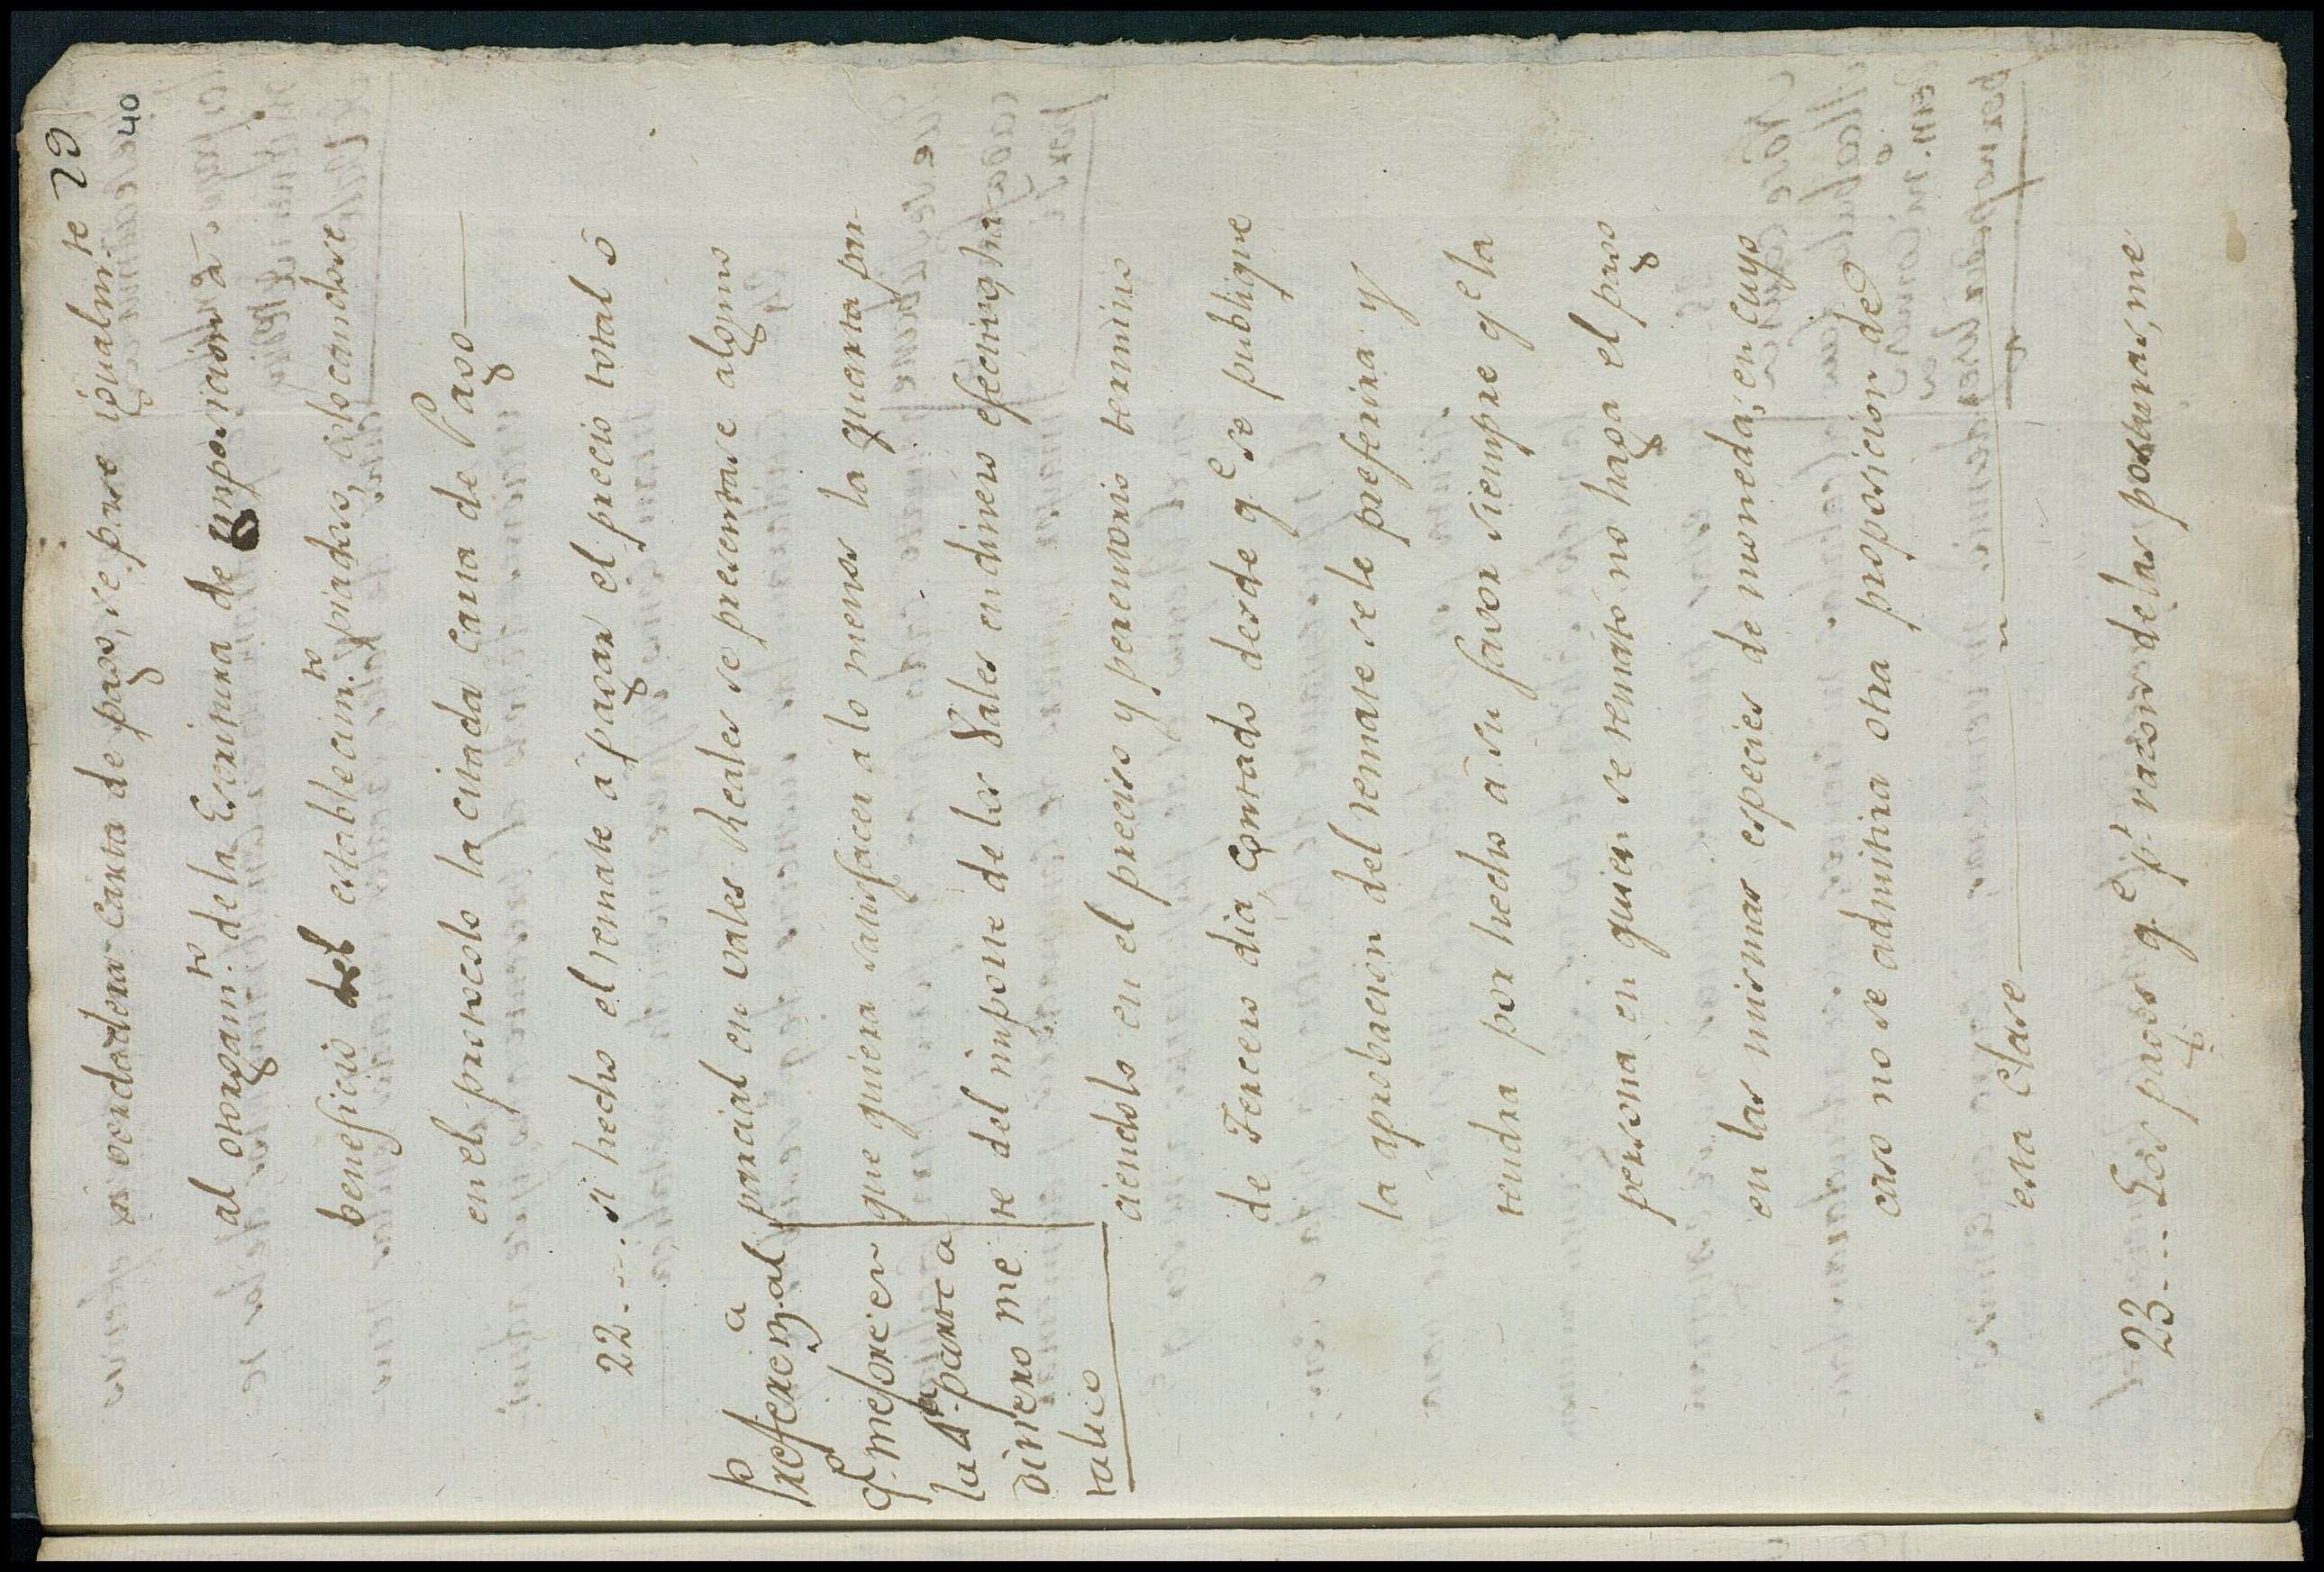 29
40
a verdadera carta de pago, se pase igualm.te
al otorgam.to de la Escritura de imposicion à
beneficio del establecim.to piadoso, colocandose
en el protocolo la citada carta de Pago
22.... si hecho el remate à pagar el precio total ô
parcial en vales Reales se presentase alguno
que quiera satisfacer a lo menos la quarta par-
te del importe de los Vales en dinero efectivo, ha-
ciendolo en el preciso y perentorio termino
de Tercero dia, contado desde q.e se publique
la aprobacion del remate se le preferira y
tendra por hecho à su favor siempre q.e la
persona en quien se remató no haga el pago
en las mismas especies de moneda, en cuyo
caso no se admitira otra proposicion de
esta Clase
Preferenz.a al
q.e mejore en
la 4.a parte a
dinero me
talico
23.... Los pagos q.e p.r razon de las posturas, me